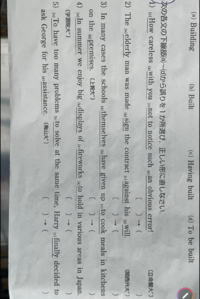 (a) Building (b) Built (c) Having built (d) To be built
次の各文の下線部(a)〜(d)から誤りを1か所選び、正しい形に直しなさい。
1) (a)How careless (b)with you (c)not to notice such (d)an obvious error!
( ) → ( )
2) The (a)elderly man was made (b)sign the contract (c)against his (d)will.
( ) → ( )
3) In many cases the schools (a)themselves (b)have given up (c)to cook meals in kitchens
on the (d)premises. ( ) → ( )
4) In summer we enjoy big (a)displays of (b)fireworks (c)to hold in various areas in Japan.
( ) → ( )
5) (a)To have too many problems (b)to solve at the same time, Harry (c)finally decided to
ask George for his (d)assistance. ( ) → ( )